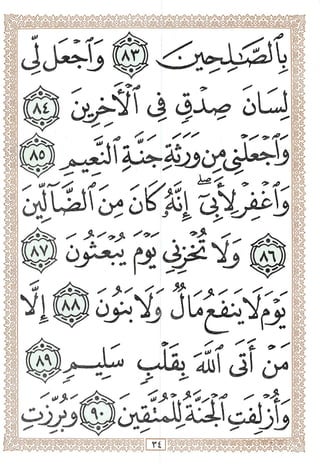 بِٱلصَّـٰلِحِينَ ۝٨٣ وَٱجْعَل لِّى
لِسَانَ صِدْقٍ فِى ٱلْأَخِرِينَ ۝٨٤
وَٱجْعَلْنِى مِن وَرَثَةِ جَنَّةِ ٱلنَّعِيمِ ۝٨٥
وَٱغْفِرْ لِأَبِىٓ إِنَّهُۥ كَانَ مِنَ ٱلضَّآلِّينَ
۝٨٦ وَلَا تُخْزِنِى يَوْمَ يُبْعَثُونَ ۝٨٧
يَوْمَ لَا يَنفَعُ مَالٌ وَلَا بَنُونَ ۝٨٨ إِلَّا
مَنْ أَتَى ٱللَّهَ بِقَلْبٍ سَلِيمٍ ۝٨٩
وَأُزْلِفَتِ ٱلْجَنَّةُ لِلْمُتَّقِينَ ۝٩٠ وَبُرِّزَتِ
٣٤